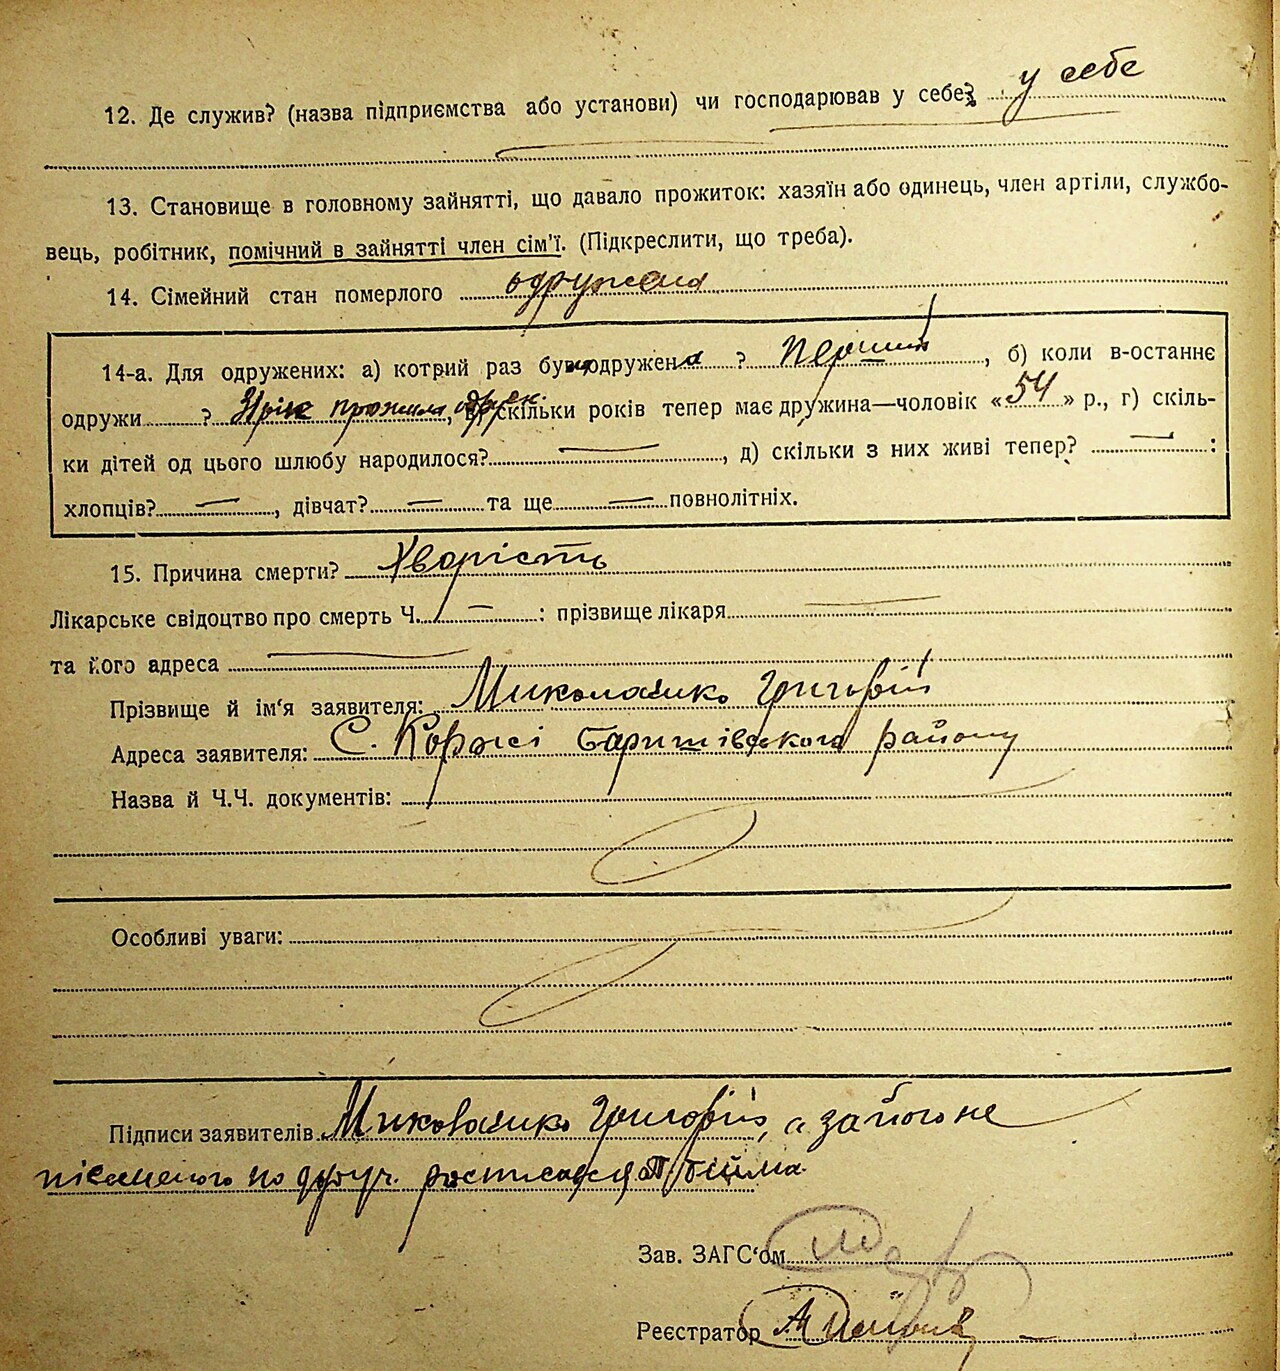 12. Де служив? (назва підприємства або установи) чи господарював у себе? у себе
13. Становище в головному зайнятті, що давало прожиток: хазяїн або одинець, член артіли, службо-
вець, робітник, помічний в зайнятті член сім'ї. (Підкреслити, що треба).
14. Сімейний стан померлого одружена
14-а. Для одружених: а) котрий раз була одружена ? Перший, б) коли в-останнє
одружи ? прожила, скільки років тепер має дружина—чоловік «54» р., г) скіль-
ки дітей од цього шлюбу народилося? —, д) скільки з них живі тепер? — :
хлопців? —, дівчат? — та ще — повнолітніх.
15. Причина смерти? Хворість
Лікарське свідоцтво про смерть Ч. — : прізвище лікаря —
та його адреса —
Прізвище й ім'я заявителя: Миколаєнко Григорій
Адреса заявителя: С. Коржі Баришівського району
Назва й Ч.Ч. документів:
Особливі уваги:
Підписи заявителів Миколаєнко Григорій, а за його не
писменого по доруч. росписался
Зав. ЗАГС'ом
Реєстратор